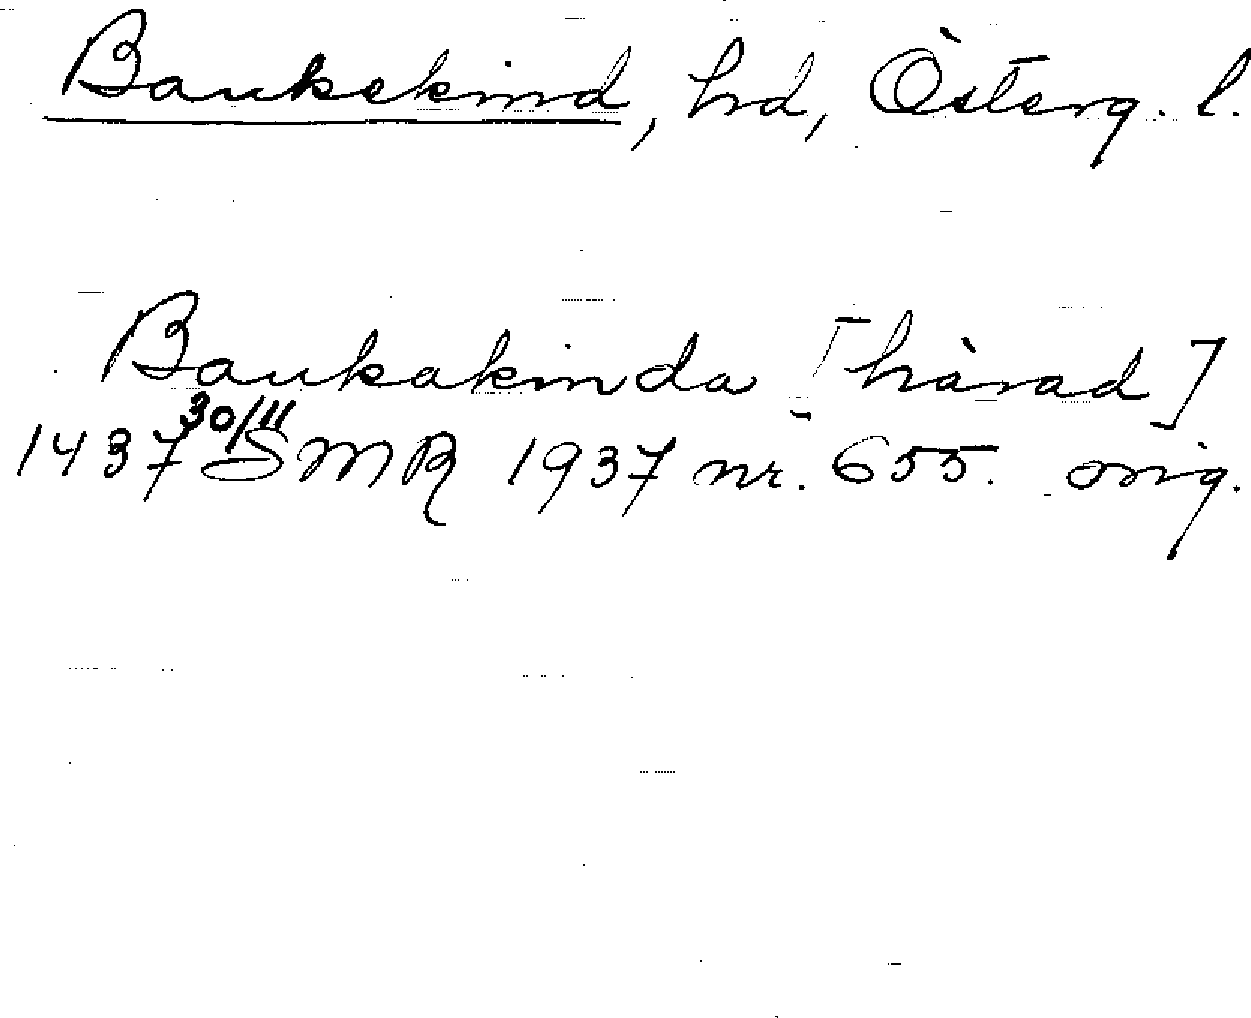 Bankekind, hd, Österg. l.
Bankakinda [härad]
1437 30/11 SMR 1937 nr. 655. orig.